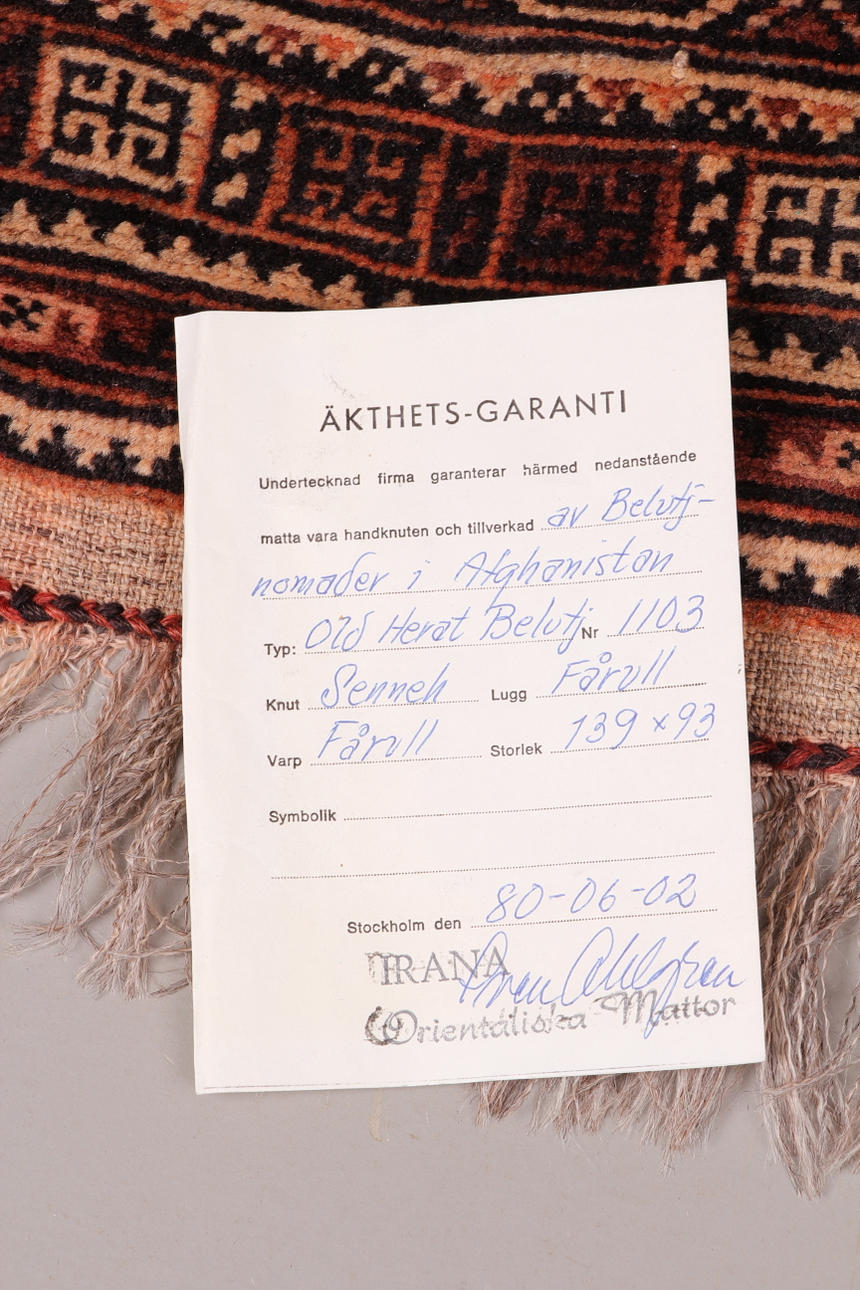 ÄKTHETS-GARANTI
Undertecknad firma garanterar härmed nedanstående
matta vara handknuten och tillverkad av Belutj-
nomader i Afghanistan
Typ: Old Herat Belutj Nr 1103
Knut Senneh Lugg Fårull
Varp Fårull Storlek 139 x 93
Symbolik
Stockholm den 80-06-02
IRANA
Orientaliska Mattor